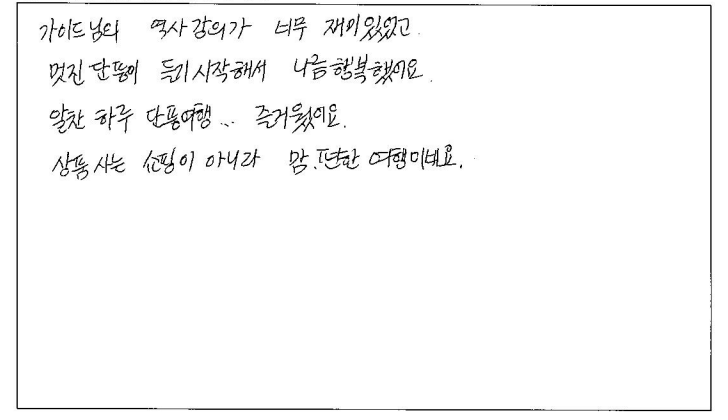 가이드님의 역사강의가 너무 재미있었고
멋진 단풍이 들기시작해서 나름행복했어요.
알찬 하루 단풍여행... 즐거웠어요.
상품사는 쇼핑이 아니라 맘.편한 여행이네요.